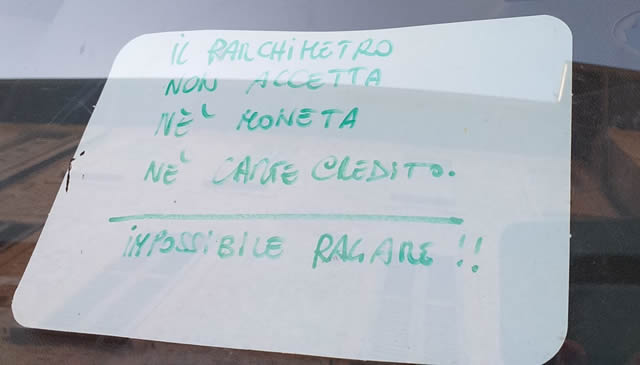 IL PARCHIMETRO
NON ACCETTA
NÈ MONETA
NÈ CARTE CREDITO.
IMPOSSIBILE PAGARE!!